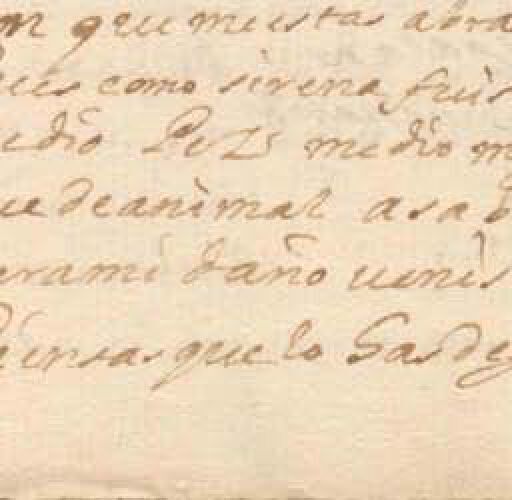 que me estas abra
como sirena fuis
edio Pez medio m
ue de animal
para mi daño uenis
piensas que lo has de